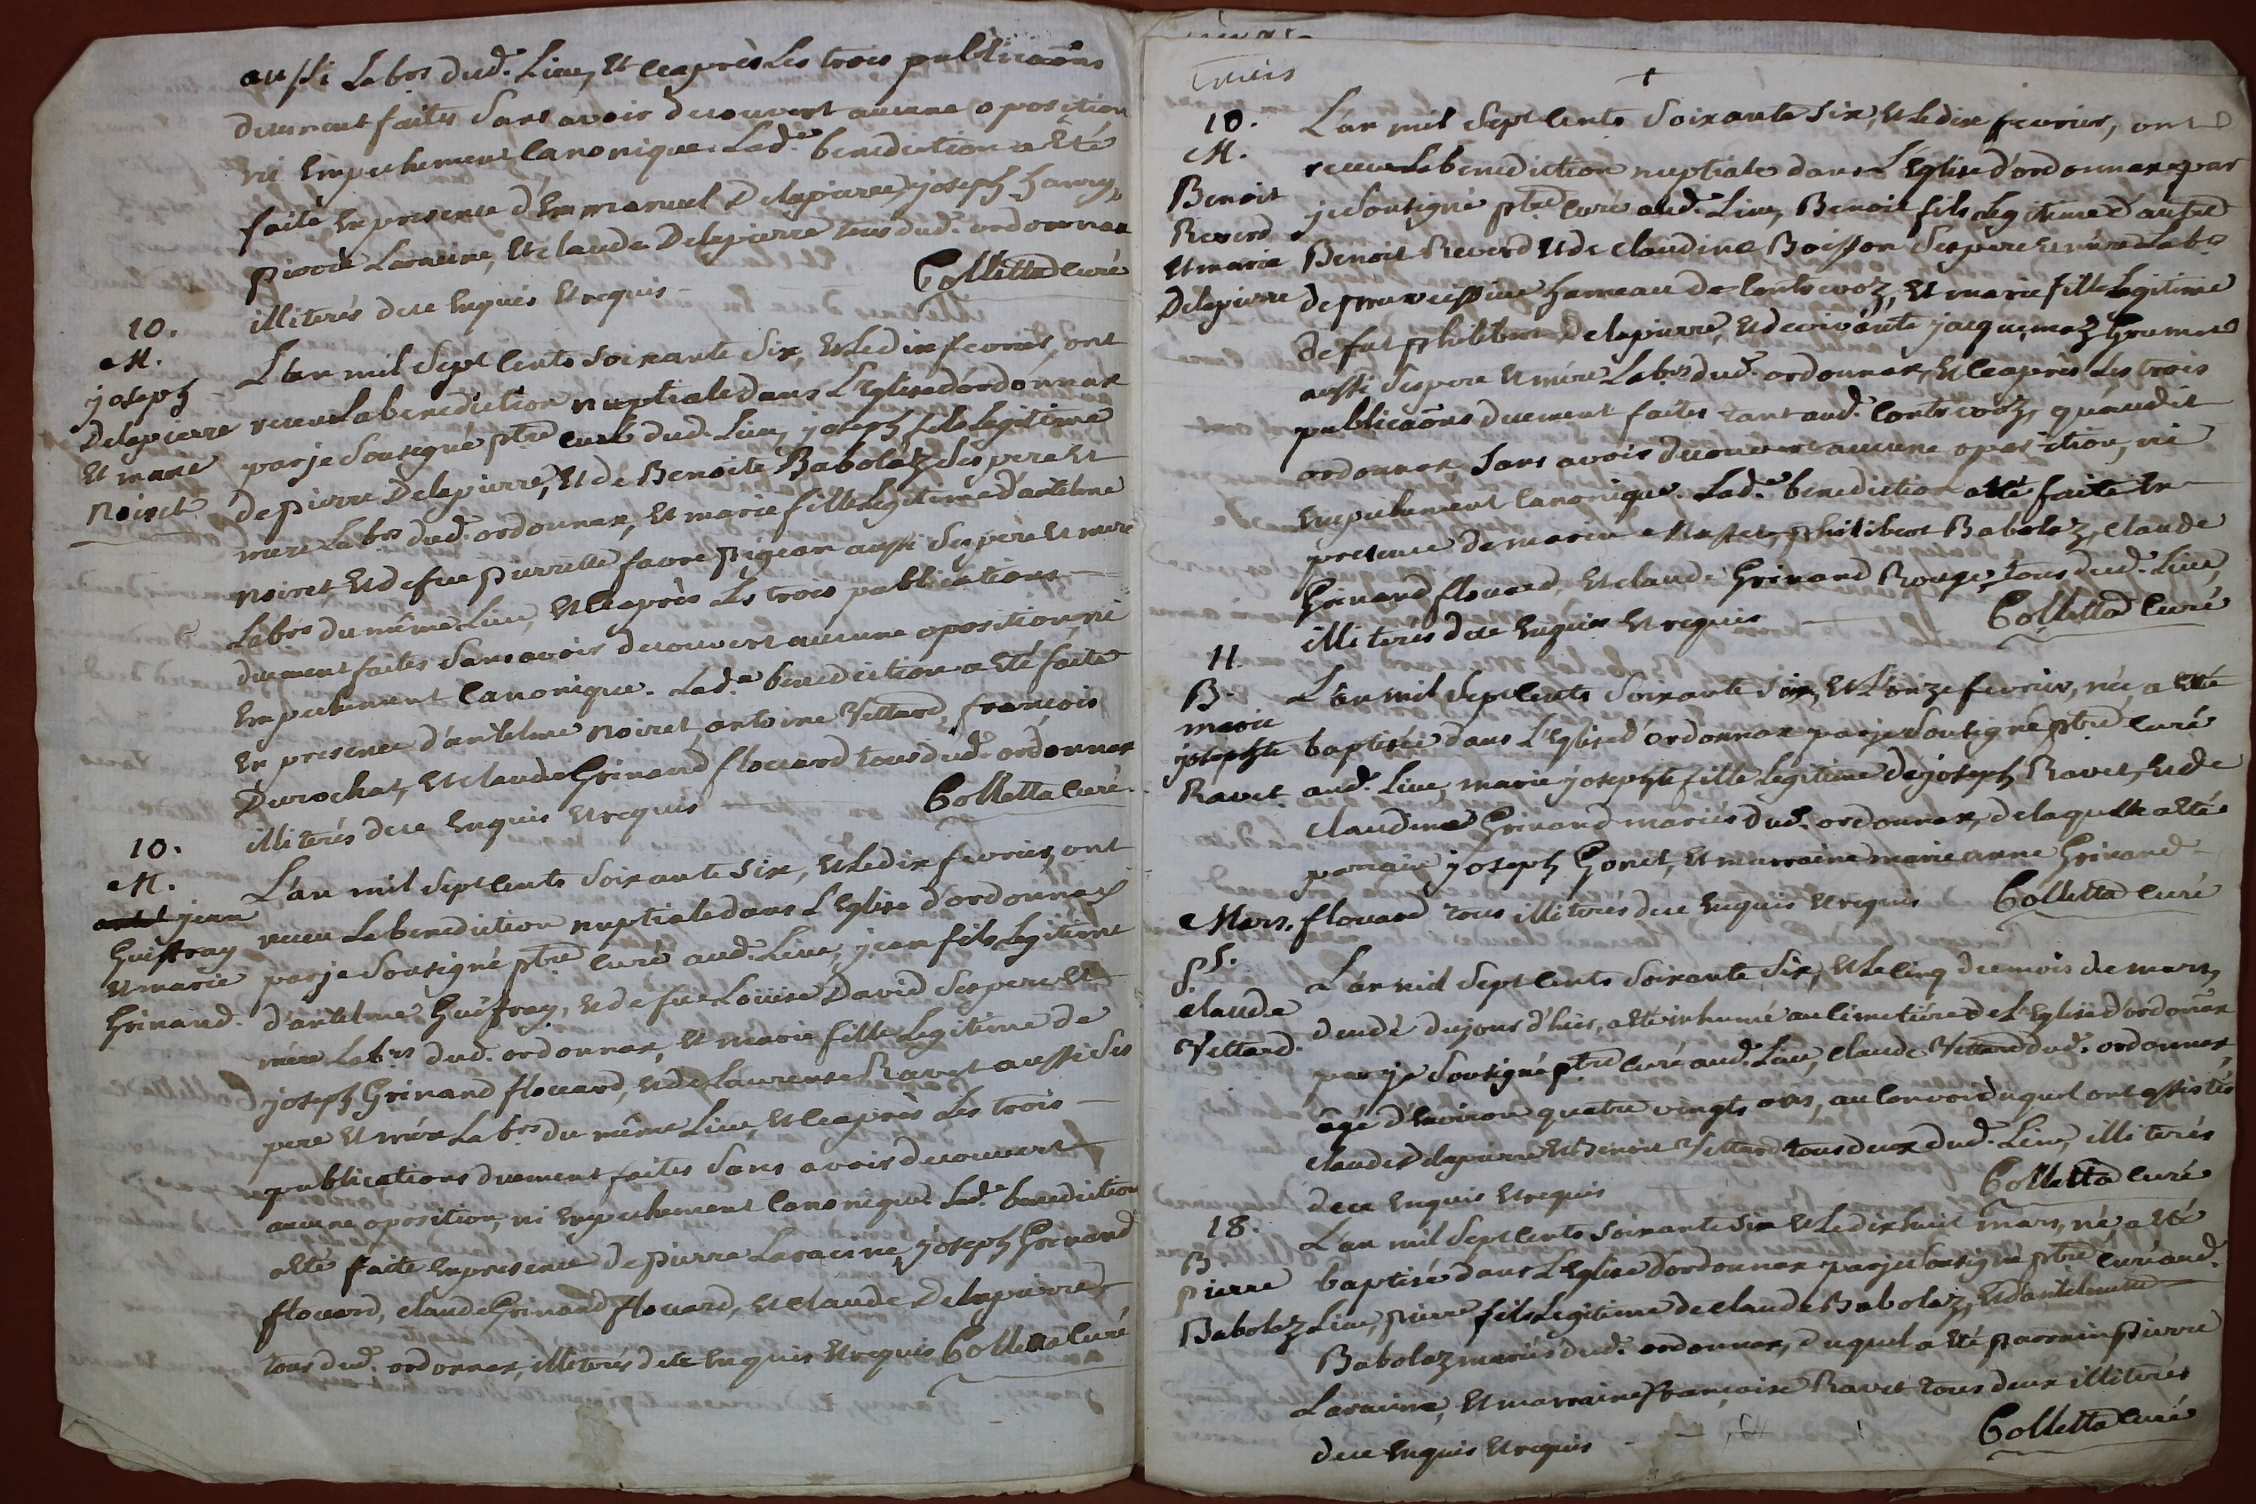 aussi Labrs dud. Lieu, Et ce après Les trois publicaõns
duement faites Sans avoir decouvert aucune oposition
ni Empechement Canonique. Lad.e benediction a Eté
faite En presence d'Emmanuel Delapierre, joseph
pierre Laracine, Et claude Delapierre tous dud. ordonnax
illiterés de ce Enquis Et requis - Colletta Curé
10.
M.
joseph
Delapierre
Et marie
Noiret
L'an mil Sept Cents Soixante Six, Et Le dix fevrier, ont
receu La benediction nuptiale dans L'Eglise d'ordonnax
par je Sousigné ptre curé dud. Lieu, joseph fils Legitime
de pierre Delapierre, Et de Benoite Babolaz Ses pere Et
mere Labrs dud. ordonnax, Et marie fille Legitime d'antelme
Noiret, Et de fue pierrette favre pigeon aussi Ses pere Et mere
Labrs du même Lieu, Et ce après Les trois publications
duement faites Sans avoir decouvert aucune oposition, ni
Empechement Canonique. Lad.e benediction a Eté faite
En presence d'antelme Noiret, antoine Vettard, françois
Durochat, Et claude Grinand flouard tous dud. ordonnax
illiterés de ce Enquis Et requis Colletta Curé
10.
M.
jean
Guiffray
Et marie
Grinand.
L'an mil Sept Cents Soixante Six, Et Le dix fevrier, ont
receu La benediction nuptiale dans L'Eglise d'ordonnax
par je Sousigné ptre Curé aud. Lieu, jean fils Legitime
d'antelme Guiffray, Et de fue Loüise David Ses pere Et
mere Labrs dud. ordonnax, Et marie fille Legitime de
joseph Grinand flouard, Et de Laurense Ravet aussi Ses
pere Et mère Labrs du même Lieu, Et ce après Les trois
publications duement faites Sans avoir decouvert
aucune oposition, ni Empechement Canonique. Lad.e benediction
a Eté faite En presence de pierre Laracine, joseph Grinand
flouard, claude Grinand flouard, Et claude Delapierre
tous dud. ordonnax, illiterés de ce Enquis Et requis Colletta Curé
trois
+
10.
M.
Benoit
Reverd
Et marie
Delapierre
L'an mil Sept Cents Soixante Six, Et Le dix fevrier, ont
receu La benediction nuptiale dans L'Eglise d'ordonnax par
je Sousigné ptre Curé aud. Lieu, Benoit fils Legitime d'autre
Benoit Reverd Et de Claudine Boisson Ses pere Et mère Labrs
de hameau de Contrevoz, Et marie fille Legitime
de fut philibert Delapierre, Et de vivante jacquemaz
aussi Ses pere Et mère Labrs dud. ordonnax, Et ce après Les trois
publicaõns duement faites tant aud. Contrevoz, qu'audit
ordonnax, Sans avoir decouvert aucune oposition, ni
Empechement Canonique. Lad.e benediction a Eté faite En
presence de marin philibert Babolaz, claude
Grinand flouard, Et claude Grinand Rouge, tous dud. Lieu,
illiterés de ce Enquis Et requis Colletta Curé
11.
B.
marie
josephte
Ravet.
L'an mil Sept Cents Soixante Six, Et L'onze fevrier, née a Eté
baptisée dans L'Eglise d'ordonnax par je Sousigné ptre Curé
aud. Lieu, marie josephte fille Legitime de joseph Ravet, Et de
claudine Grinand mariés dud. ordonnax, de laquelle a Eté
parrain joseph Gonet, Et marraine marie anne Grinand
flouard tous illiterés de ce Enquis Et requis Colletta Curé
Mars.
5.
S.
claude
Vettard.
L'an mil Sept Cents Soixante Six, Et Le Cinq du mois de mars,
decedé du jour d'hier, a Eté inhumé au Cimetière de L'Eglise d'ordonnax
par je Sousigné ptre Curé aud. Lieu, Claude Vettard dud. ordonnax,
âgé d'Environ quatre vingts ans, au Convoi duquel ont assistés
claude Delapierre Et Benoit Vettard tous deux dud. Lieu, illiterés
de ce Enquis Et requis Colletta Curé
18.
B.
pierre
Babolaz
L'an mil Sept Cents Soixante Six Et Le dixhuit mars, né a Eté
baptisé dans L'Eglise d'ordonnax par je Sousigné ptre Curé aud.
Lieu, pierre fils Legitime de claude Babolaz, Et d'antelmette
Babolaz mariés dud. ordonnax, duquel a Eté parrain pierre
Laracine, Et marraine françoise Ravet tous deux illiterés
de ce Enquis Et requis - Colletta Curé